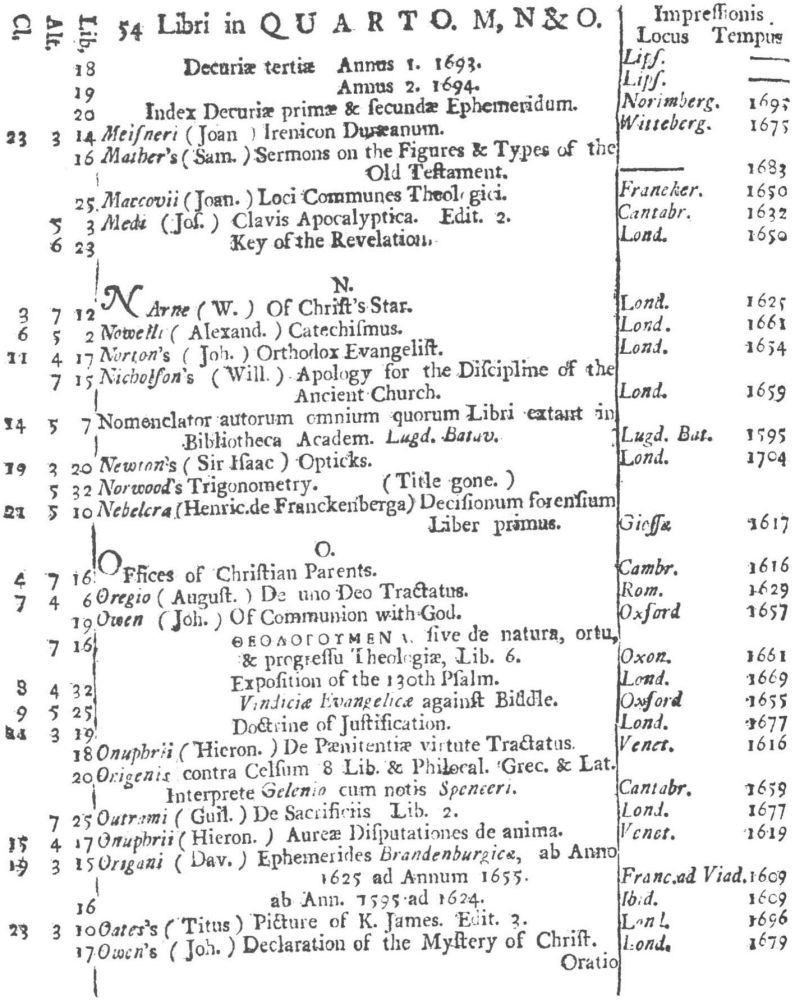 Cl. Alt. Lib. 54 Libri in QUARTO. M, N & O. Impreſſionis
Locus Tempus
18 Decuriæ tertiæ Annus 1. 1693. Lipſ. ——
19 Annus 2. 1694. Lipſ. ——
20 Index Decuriæ primæ & ſecundæ Ephemeridum. Norimberg. 1695
23 3 14 Meiſneri (Joan ) Irenicon Duræanum. Witteberg. 1675
16 Mather's (Sam.) Sermons on the Figures & Types of the
Old Teſtament. —— 1683
25 Maccovii (Joan.) Loci Communes Theologici. Franeker. 1650
5 3 Medi (Joſ.) Clavis Apocalyptica. Edit. 2. Cantabr. 1632
6 23 Key of the Revelation. Lond. 1650
N.
3 7 12 NArne (W.) Of Chriſt's Star. Lond. 1625
6 5 2 Nowelli (Alexand.) Catechiſmus. Lond. 1661
11 4 17 Norton's (Joh.) Orthodox Evangeliſt. Lond. 1654
7 15 Nicholſon's (Will.) Apology for the Diſcipline of the
Ancient Church. Lond. 1659
14 5 7 Nomenclator autorum omnium quorum Libri extant in
Bibliotheca Academ. Lugd. Batav. Lugd. Bat. 1595
19 3 20 Newton's (Sir Iſaac) Opticks. Lond. 1704
5 32 Norwood's Trigonometry. (Title gone.)
21 5 10 Nebelcra (Henric. de Franckenberga) Deciſionum forenſium
Liber primus. Gieſſæ 1617
O.
4 7 16 OFfices of Chriſtian Parents. Cambr. 1616
7 4 6 Oregio (Auguſt.) De uno Deo Tractatus. Rom. 1629
19 Owen (Joh.) Of Communion with God. Oxford 1657
7 16 ΘΕΟΛΟΓΟΥΜΕΝΑ. ſive de natura, ortu,
& progreſſu Theologiæ, Lib. 6. Oxon. 1661
8 4 32 Expoſition of the 130th Pſalm. Lond. 1669
9 5 25 Vindiciæ Evangelicæ againſt Biddle. Oxford 1655
3 19 Doctrine of Juſtification. Lond. 1677
18 Onuphrii (Hieron.) De Pænitentiæ virtute Tractatus. Venet. 1616
20 Origenis contra Celſum 8 Lib. & Philocal. Grec. & Lat.
Interprete Gelenio cum notis Spenceri. Cantabr. 1659
7 25 Outrami (Guil.) De Sacrificiis Lib. 2. Lond. 1677
15 4 17 Onuphrii (Hieron.) Aureæ Diſputationes de anima. Venet. 1619
19 3 15 Origani (Dav.) Ephemerides Brandenburgicæ, ab Anno
1625 ad Annum 1655. Franc. ad Viad. 1609
16 ab Ann. 1595 ad 1624. Ibid. 1609
23 3 10 Oates's (Titus) Picture of K. James. Edit. 3. Lond. 1696
17 Owen's (Joh.) Declaration of the Myſtery of Chriſt. Lond. 1679
Oratio